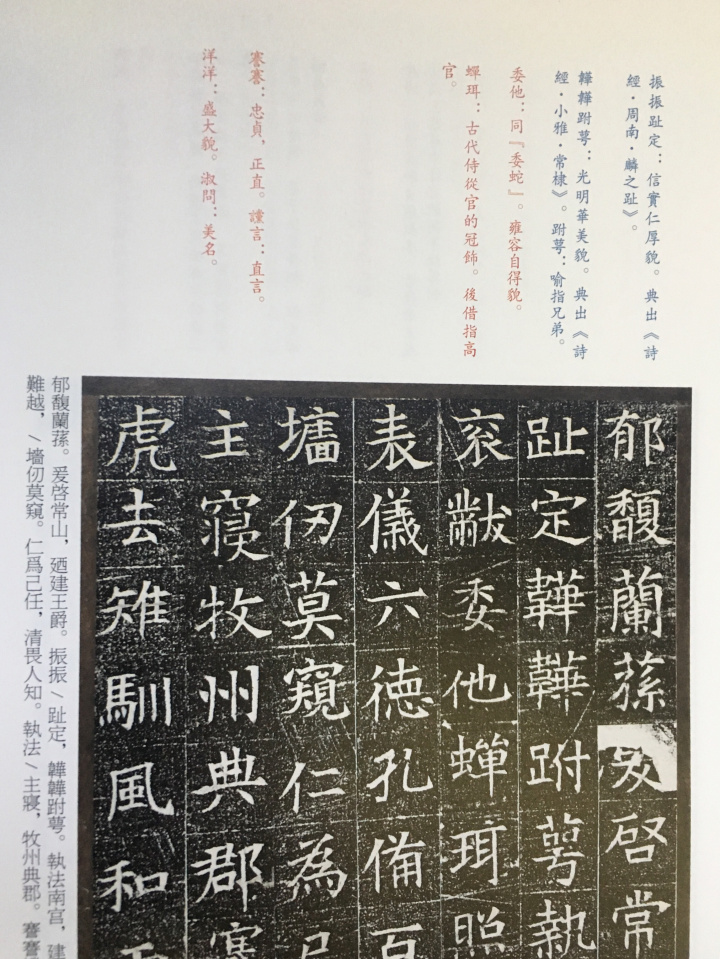 振振趾定：信實仁厚貌。典出《詩
經·周南·麟之趾》。
韡韡跗萼：光明華美貌。典出《詩
經·小雅·常棣》。跗萼：喻指兄弟。
委他：同『委蛇』。雍容自得貌。
蟬珥：古代侍從官的冠飾。後借指高
官。
謇謇：忠貞，正直。讜言：直言。
洋洋：盛大貌。淑問：美名。
郁馥蘭蓀爰啓常
趾定韡韡跗萼執
衮黻委他蟬珥照
表儀六德孔備百
墻仞莫窺仁為己
主寢牧州典郡謇
虎去雉馴風和
郁馥蘭蓀。爰啓常山，廼建王爵。振振／趾定，韡韡跗萼。執法南宫，建
難越，／墻仞莫窺。仁爲己任，清畏人知。執法／主寢，牧州典郡。謇謇